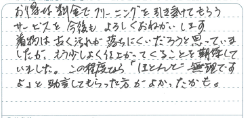 お得な料金でクリーニングを引き受けてもらう
サービスを今後もよろしくおねがいします
着物は古く汚れが落ちにくいだろうと思っていま
したが、もう少しよく仕上がってくることを期待して
いました。この程度なら「ほとんど無理です
よ」と助言してもらった方がよかったかも。